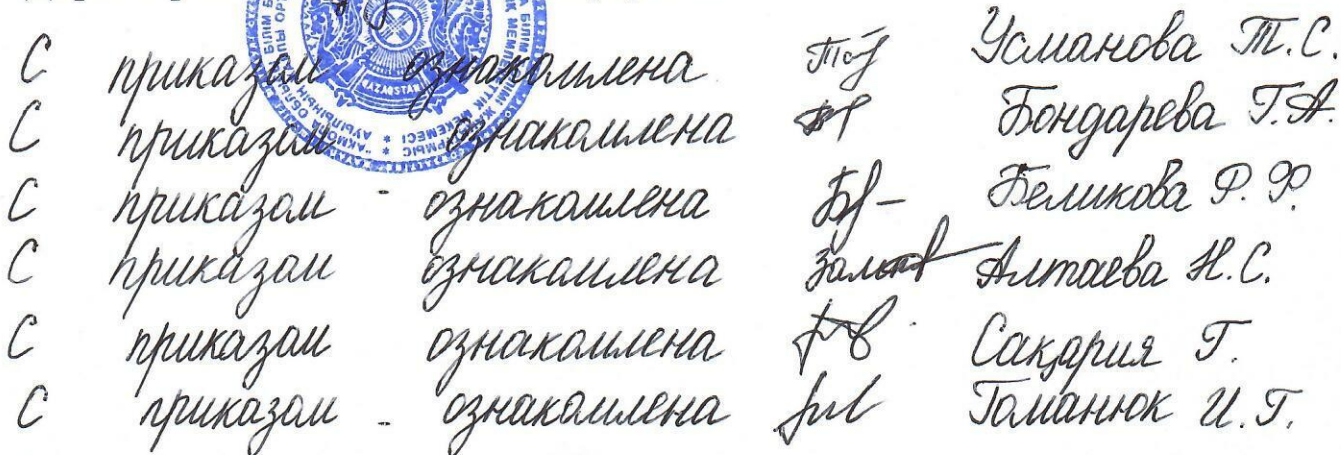 С приказом ознакомлена Усманова Т.С.
С приказом ознакомлена Бондарева Г.А.
С приказом - ознакомлена Беликова Р.Р.
С приказом ознакомлена Алтаева Н.С.
С приказом ознакомлена Сақария Г.
С приказом - ознакомлена Томанюк И.Г.
QAZAQSTAN